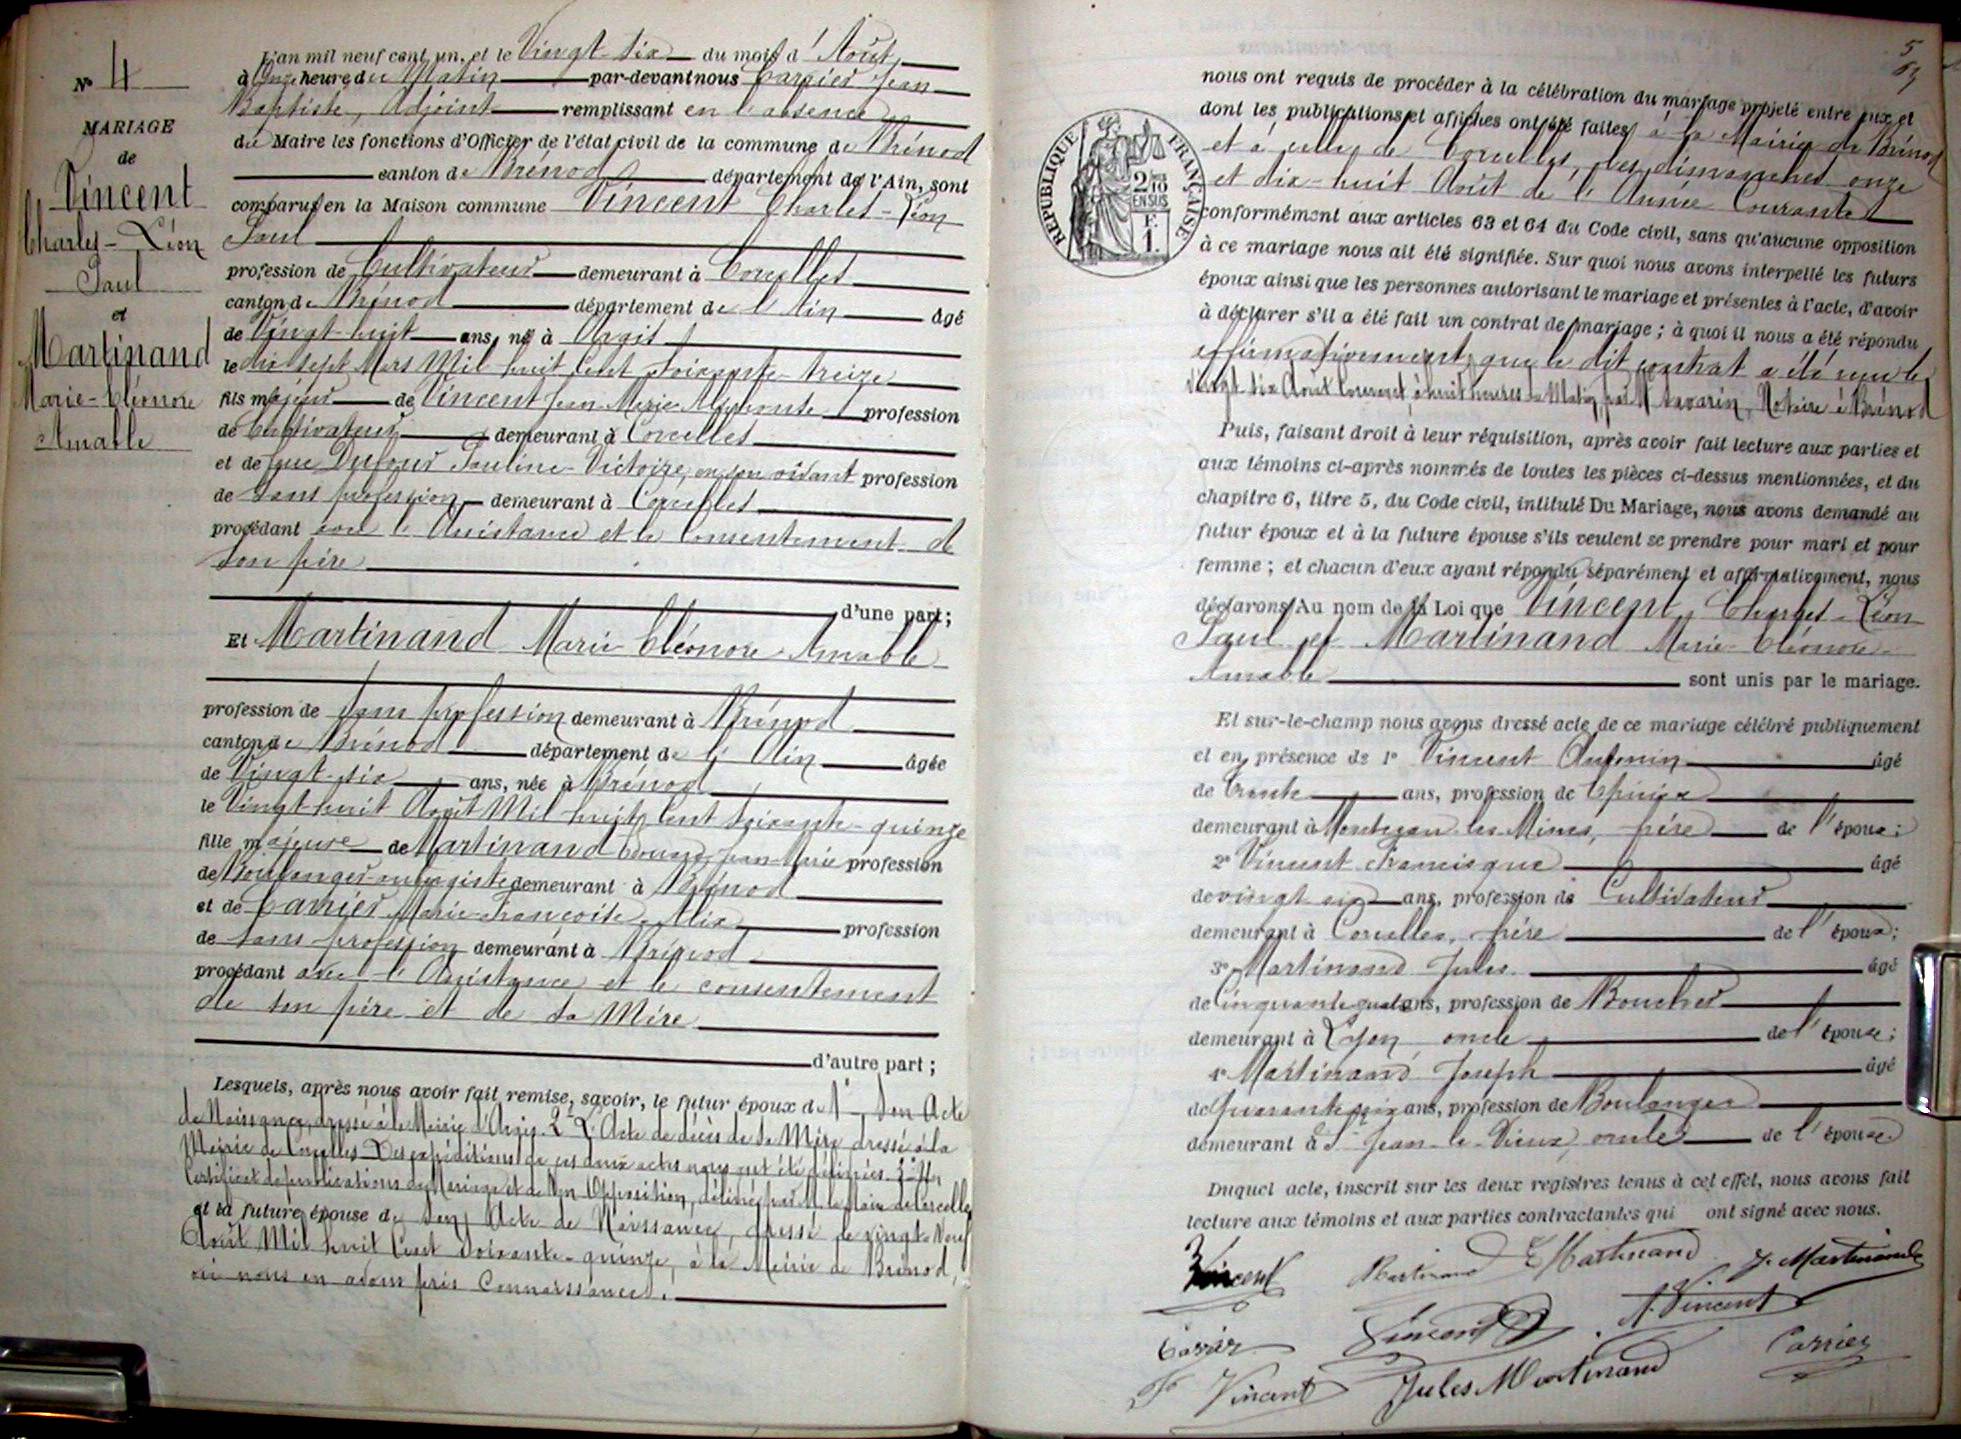 Nº 4
MARIAGE
de
Vincent
Charles-Léon
Paul
et
Martinand
Marie-Cléonore
Amable
L'an mil neuf cent un, et le Vingt-six du mois d'Août
à Onze heures du Matin par-devant nous Carrier Jean
Baptiste, Adjoint remplissant en l'absence
du Maire les fonctions d'Officier de l'état civil de la commune de Brénod
canton de Brénod département de l'Ain, sont
comparus en la Maison commune Vincent Charles-Léon
Paul
profession de Cultivateur demeurant à Corcelles
canton de Brénod département de l'Ain âgé
de Vingt-huit ans, né à Argis
le dix sept Mars Mil huit Cent Soixante-treize
fils majeur de Vincent Jean-Marie-Alphonse profession
de Cultivateur demeurant à Corcelles
et de feue Dufour Pauline-Victoire, en son vivant profession
de Sans profession demeurant à Corcelles
procédant avec l'Assistance et le Consentement de
son père
d'une part;
Et Martinand Marie-Cléonore Amable
profession de Sans profession demeurant à Brénod
canton de Brénod département de l'Ain âgée
de Vingt-six ans, née à Brénod
le Vingt-huit Août Mil huit Cent soixante-quinze
fille majeure de Martinand Edouard Jean-Marie profession
de Boulanger-aubergiste demeurant à Brénod
et de Carrier Marie-Françoise-Alix profession
de Sans profession demeurant à Brénod
procédant avec l'Assistance et le consentement
de son père et de sa Mère
d'autre part;
Lesquels, après nous avoir fait remise, savoir, le futur époux de 1° Son Acte
de Naissance dressé à la Mairie d'Argis. 2° L'Acte de décès de sa Mère dressé à la
Mairie de Corcelles. Des expéditions de ces deux actes nous ont été délivrées. 3° Un
Certificat de publications de Mariage et de Non Opposition, délivré par M. le Maire de Corcelles
et la future épouse de Son Acte de Naissance, dressé le vingt-Neuf
Août Mil huit Cent Soixante-quinze, à la Mairie de Brénod,
où nous en avons pris Connaissance.
5
nous ont requis de procéder à la célébration du mariage projeté entre eux et
dont les publications et affiches ont été faites à la Mairie de Brénod
et à celle de Corcelles, les dimanches onze
et dix-huit Août de l'Année Courante
conformément aux articles 63 et 64 du Code civil, sans qu'aucune opposition
à ce mariage nous ait été signifiée. Sur quoi nous avons interpellé les futurs
époux ainsi que les personnes autorisant le mariage et présentes à l'acte, d'avoir
à déclarer s'il a été fait un contrat de mariage; à quoi il nous a été répondu
affirmativement, que le dit contrat a été reçu le
Vingt six Août Courant, à huit heures du Matin, par M. Savarin, Notaire à Brénod
RÉPUBLIQUE FRANÇAISE
2/10
EN SUS
F.
1.
Puis, faisant droit à leur réquisition, après avoir fait lecture aux parties et
aux témoins ci-après nommés de toutes les pièces ci-dessus mentionnées, et du
chapitre 6, titre 5, du Code civil, intitulé Du Mariage, nous avons demandé au
futur époux et à la future épouse s'ils veulent se prendre pour mari et pour
femme; et chacun d'eux ayant répondu séparément et affirmativement, nous
déclarons Au nom de la Loi que Vincent, Charles-Léon
Paul et Martinand Marie-Cléonore
Amable sont unis par le mariage.
Et sur-le-champ nous avons dressé acte de ce mariage célébré publiquement
et en présence de 1° Vincent Antonin âgé
de trente ans, profession de Epicier
demeurant à Montceau-les-Mines, frère de l'époux;
2° Vincent Francisque âgé
de vingt six ans, profession de Cultivateur
demeurant à Corcelles, frère de l'époux;
3° Martinand Jules âgé
de Cinquante quatre ans, profession de Boucher
demeurant à Lyon, oncle de l'épouse;
4° Martinand Joseph âgé
de Quarante six ans, profession de Boulanger
demeurant à St Jean-le-Vieux, oncle de l'épouse
Duquel acte, inscrit sur les deux registres tenus à cet effet, nous avons fait
lecture aux témoins et aux parties contractantes qui ont signé avec nous.
Vincent Martinand E Martinand J. Martinand
Vincent A. Vincent
Carrier
Vincent Jules Martinand